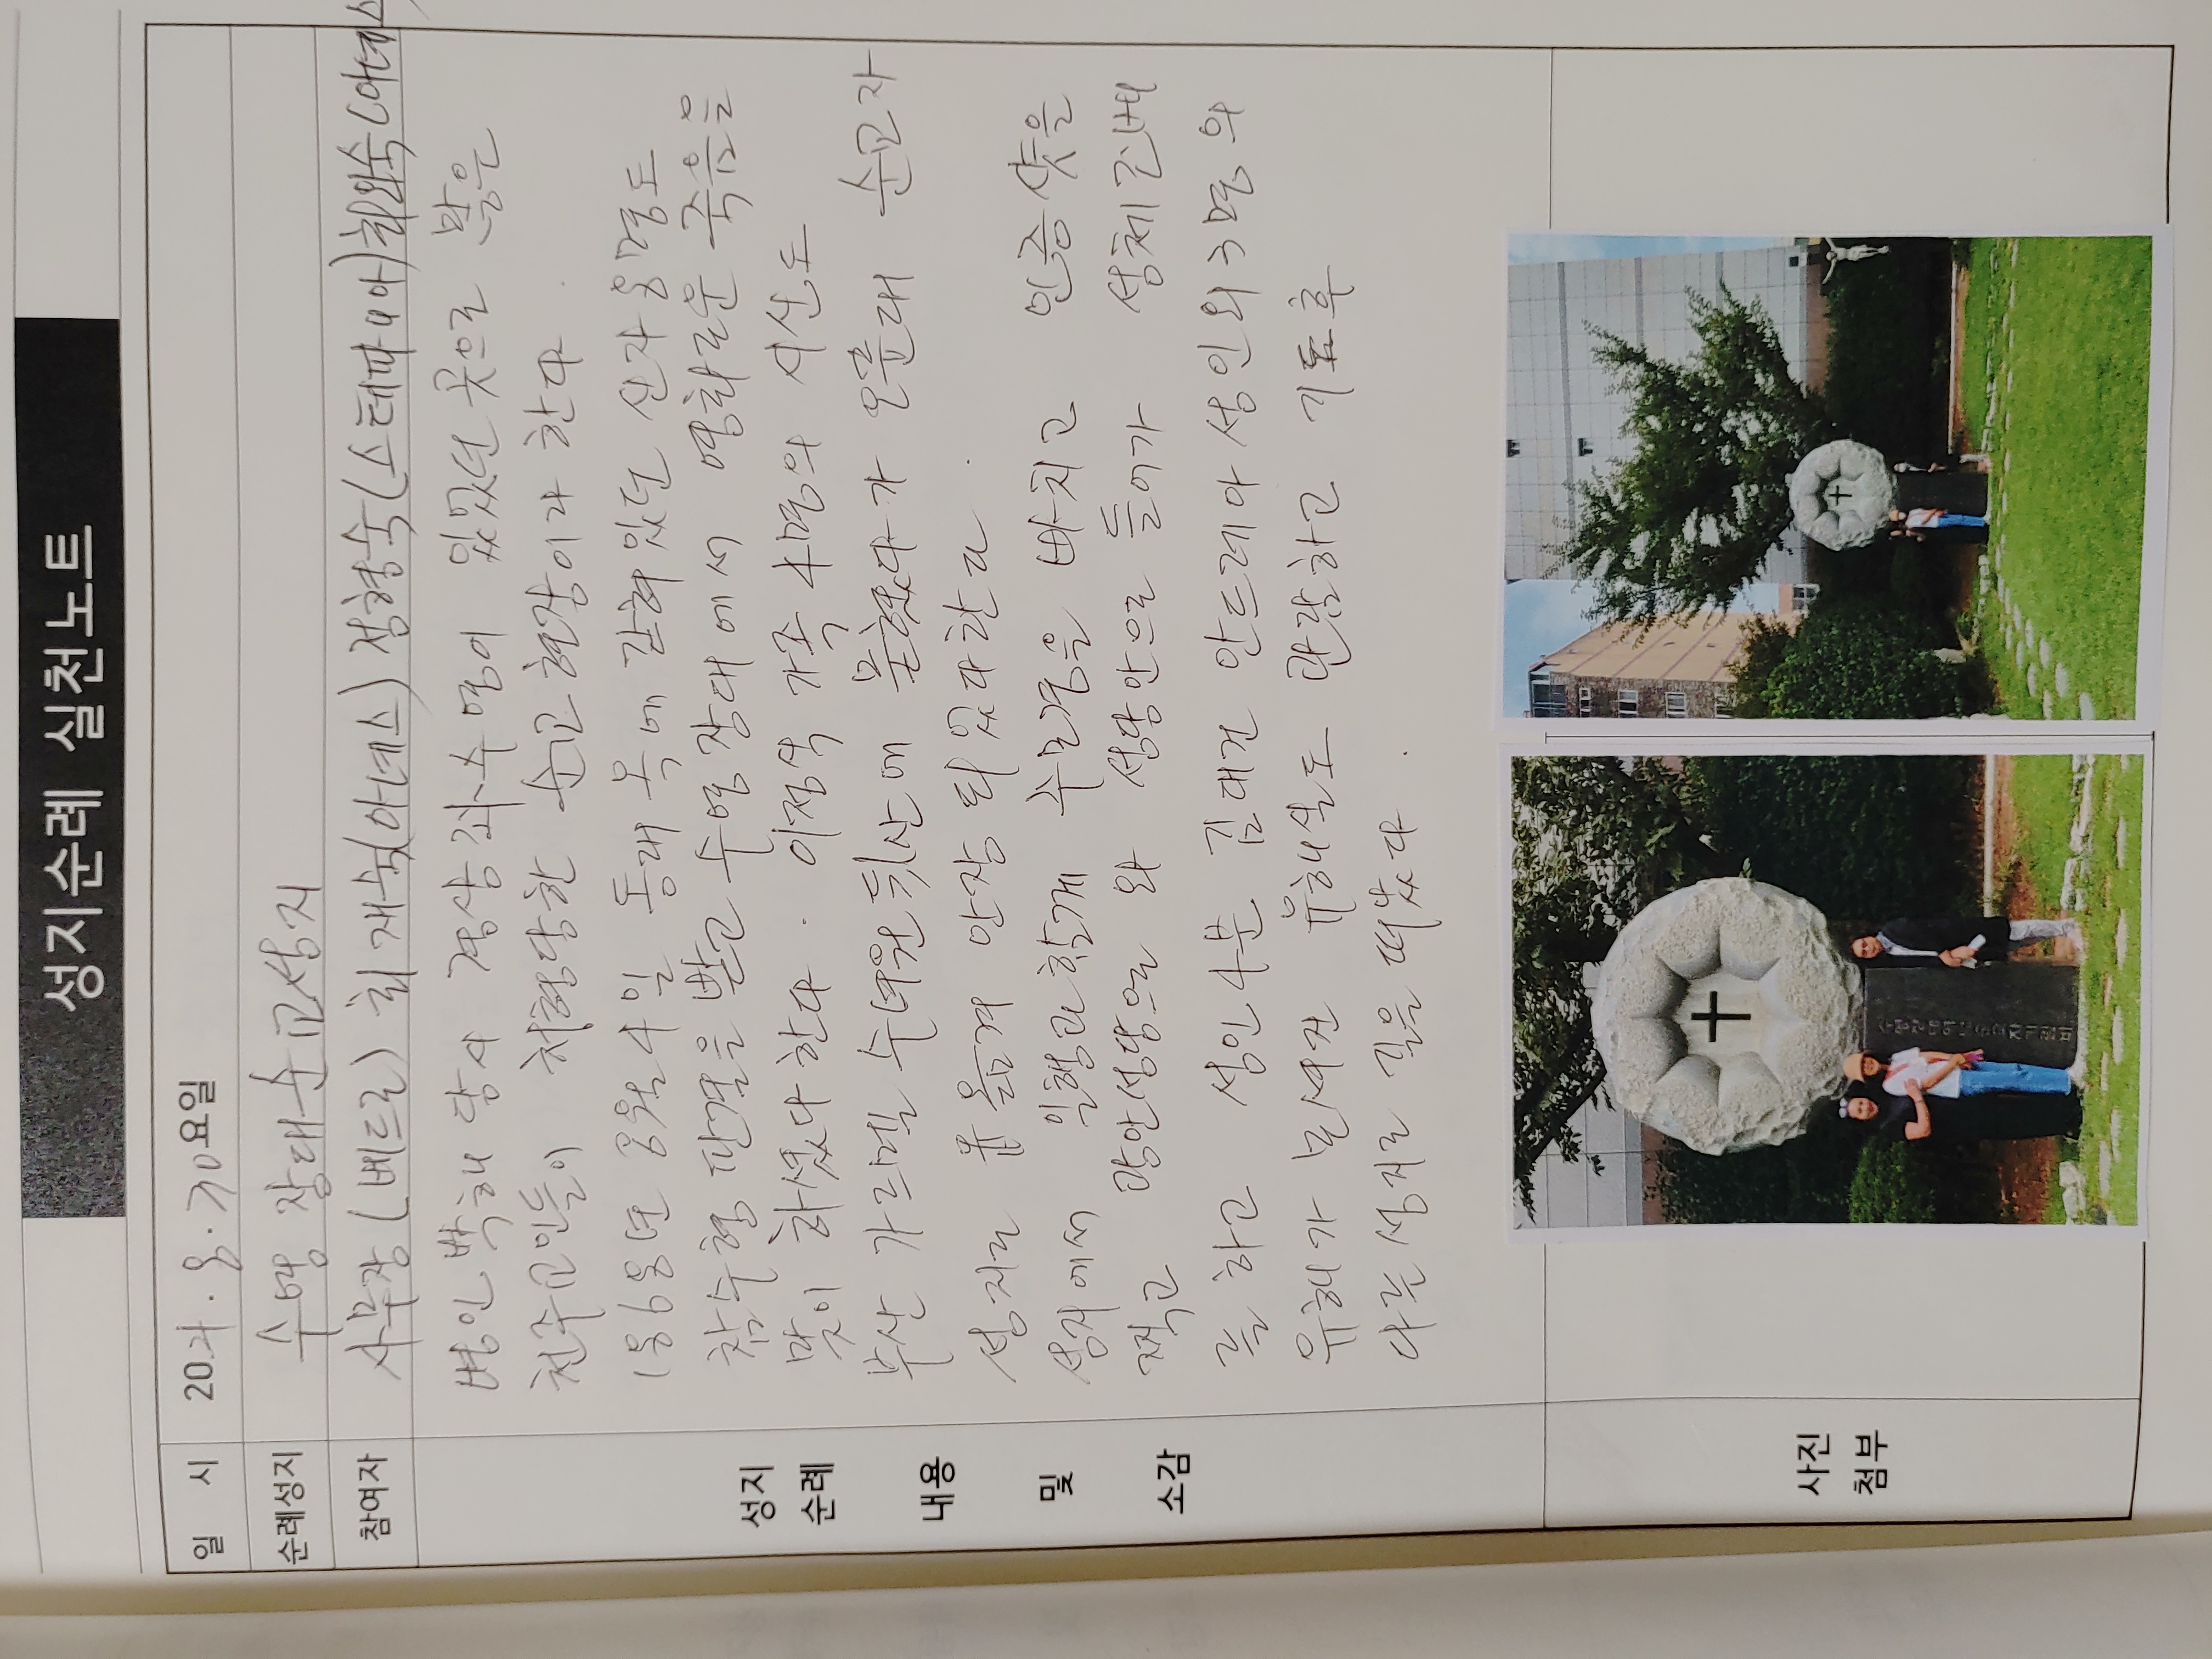 성지순례 실천노트
일 시 2021. 8. 30 요일
순례성지 수영 장대순교성지
참여자 사무장(베드로) 최재숙(아녜스) 정형숙(스테파니아) 최외숙(아녜스
병인박해 당시 경상좌수영이 있었던 곳으로 많은
천주교인들이 처형당한 순교현장이라 한다.
1868년 8월 4일 동래 옥에 갇혀있던 신자 8명도
참수형 판결을 받고 수영장대에서 영화로운 죽음을
맞이 하셨다 한다. 이정식 가족 4명의 시신도
부산 가르멜 수녀원 뒷산에 묻혔다가 오륜대 순교자
성지로 옮겨 안장 되었다한다.
성지에서 일행과 함께 주모경을 바치고 인증샷을
찍고 광안성당으로 와 성당안으로 들어가 성체조배
를 하고 성인 4분 김대건 안드레아 성인외 3명의
유해가 모셔진 유해실도 관람하고 기도후
다른 성지로 길을 떠났다.
성지
순례
내용
및
소감
사진
첨부